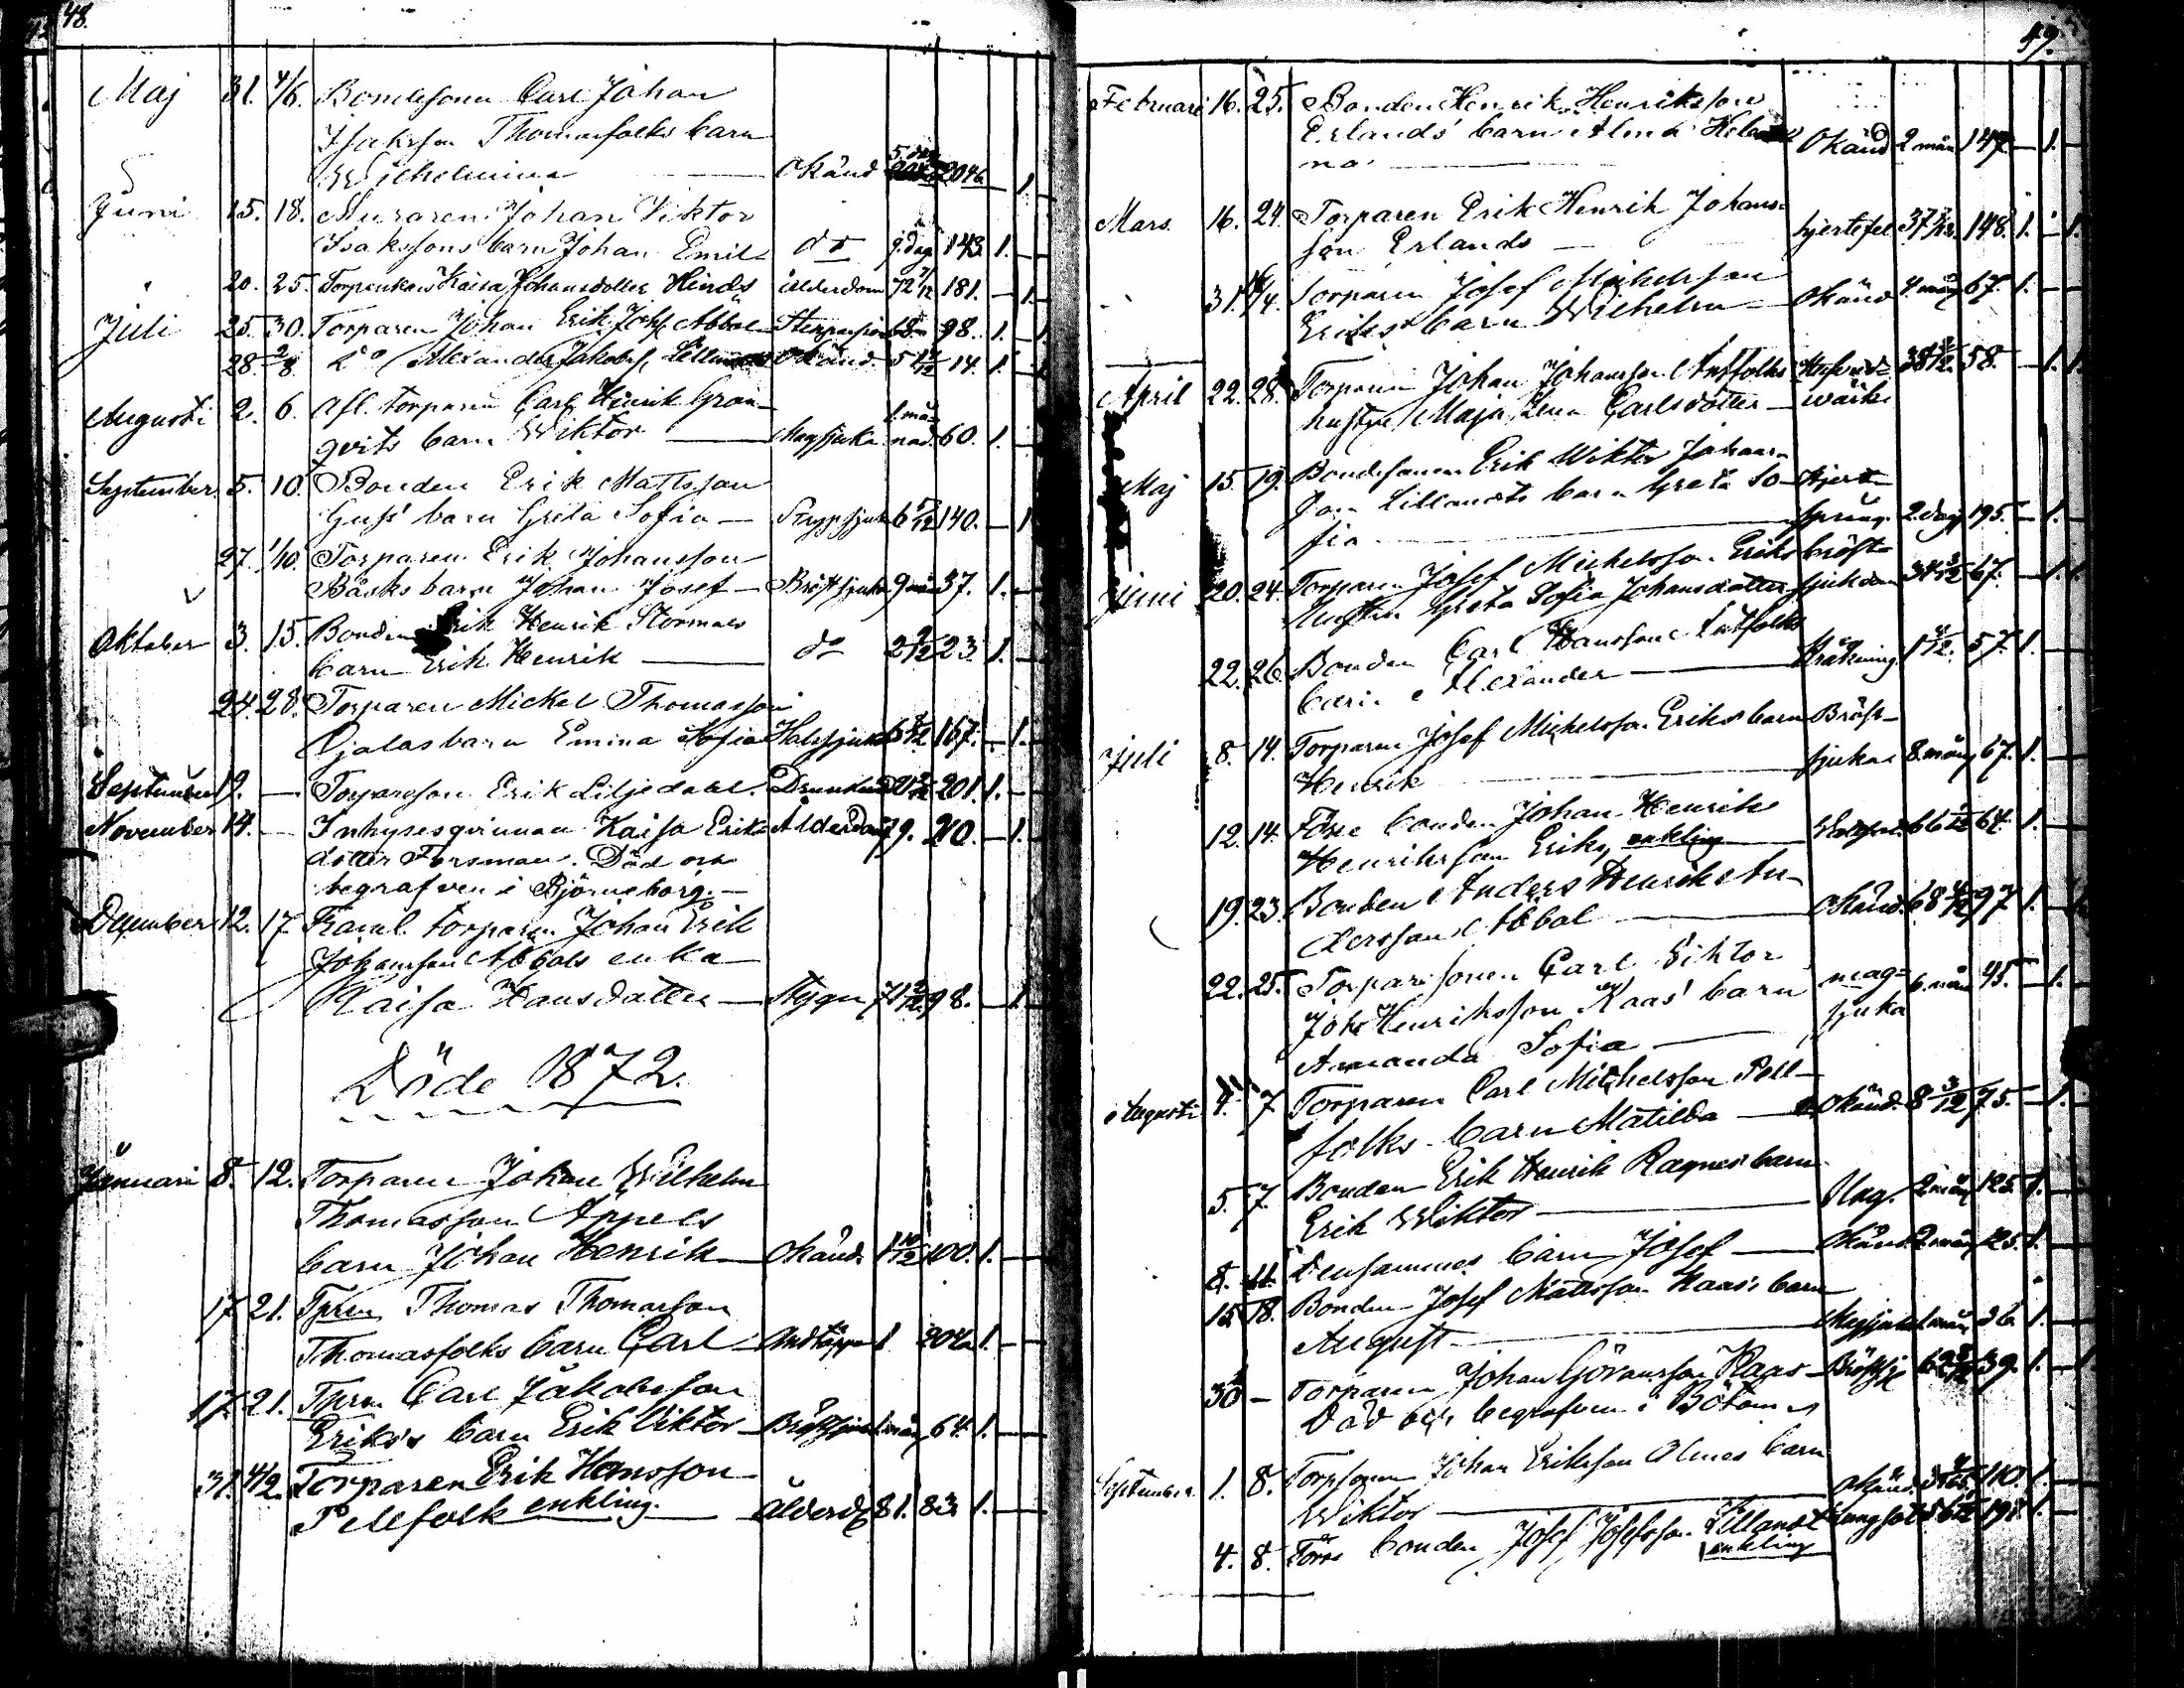 48.
Maj 31. 4/6. Bondesonen Carl Johan
Isaksson Thomasfolks barn
Wilhelmina — okänd 5 dag 204a — 1.
Juni 15. 18. Muraren Johan Viktor
Isakssons barn Johan Emil do 9. dag. 143. 1. —
" 20. 25. Torpenkan Kaisa Johansdotter Hinds ålderdom 72 181. — 1.
Juli 25. 30. Torparen Johan Erik Johs. Abbal 68 98. 1. —
28. 2/8. do Alexander Jakobs. Okänd. 5 14. 1. —
Augusti 2. 6. Afl. torparen Carl Henrik Gran-
qvists barn Wiktor — Magsjuka 1 månad. 60. 1. —
September 5. 10. Bonden Erik Mattsson
barn Greta Sofia — Strypsjuka 6 140. — 1
27. 1/10. Torparen Erik Johansson
Båsks barn Johan Josef — Bröstsjuka 9 mån 37. 1. —
Oktober 3. 15. Bonden Erik Henrik Stormans
barn Erik Henrik — do 2 23. 1. —
24. 28. Torparen Mickel Thomasson
Ojalas barn Emma Sofia Halssjuka 167. — 1.
September 19. — Torparson Erik Liljedahl. 201. 1. —
November 14. — Inhysesqvinnan Kaisa Eriks- Ålderdom 79. 210. — 1.
dotter Forsman. Död och
begrafven i Björneborg. —
December 12. 17 Framl. torparen Johan Erik
Johansson Abbals enka
Kaisa Hansdotter — Stygn 71 98. — 1
Döde 1872.
Januari 8. 12. Torparen Johan Wilhelm
Thomasson Äppels
barn Johan Henrik — Okänd. 1 10/12 100. 1. —
17. 21. Tprn Thomas Thomasson
Thomasfolks barn Carl — Andtäppa 1 204a 1. —
17. 21. Tprn Carl Jakobsson
Eriks's barn Erik Viktor — 1 mån 64. 1. —
31. 4/2. Torparen Erik Hansson
Pellfolk enkling. — Ålderd. 81. 83. 1. —
49.
Februari 16. 25. Bonden Henrik Henriksson
Erlands' barn Alma Hele-
na — Okänd 2 mån 147. — 1.
Mars. 16. 24. Torparen Erik Henrik Johans-
son Erlands — hjertefel 37 148. 1. —
31. /4. Torparen Josef Michelsson
Eriks' barn Wilhelm — okänd 4 mån 67. 1. —
April 22. 28. Torparen Johan Johansson Antfolks Hufvud- 38 58. — 1.
hustru Maja Lena Carlsdotter — wärk
Maj 15. 19. Bondesonen Erik Wiktor Johans-
son Lillandts barn Greta So- Hjert-
fia — språng. 2 dag 195. — 1.
Juni 20. 24. Torparen Josef Michelsson Eriks bröst-
hustru Greta Sofia Johansdotter sjukdom 34 67. — 1.
22. 26. Bonden Carl Hansson Antfolks
barn Alexander — Kräkning. 1 57. 1.
Juli 8. 14. Torparen Josef Michelsson Eriks barn Bröst-
Henrik — sjuka 8 mån 67. 1. —
12. 14. Före bonden Johan Henrik
Henriksson Eriks, enkling — 66 64. 1.
19. 23. Bonden Anders Henrik An-
dersson Abbal — okänd. 68 97 1. —
22. 25. Torparesonen Carl Viktor
Joh. Henriksson Kaas' barn mag- 6. mån 45. — 1.
Amanda Sofia — sjuka
Augusti 4. 7 Torparen Carl Michelsson Pell-
folks barn Matilda — okänd. 8 3/12 75. — 1.
5. 7. Bonden Erik Henrik Ragnes barn
Erik Wiktor — Slag. 2 mån 125. 1. —
8. 11. Densammes barn Josef — Okänd. 2 mån 125. 1. —
15. 18. Bonden Josef Mattsson Kaas's barn
August — Magsjuka 1 mån 36. 1. —
30 — Torparen Johan Göransson Kaas — Bröstsj. 62 39. 1. —
Död och begrafven i Bötom
September 1. 8. Torpsonen Johan Eriksson Olmes barn
Wiktor — okänd. 110. 1. —
4. 8. Före bonden Josef Josefsson Lillandt Lungsot 56 198. 1. —
enkling